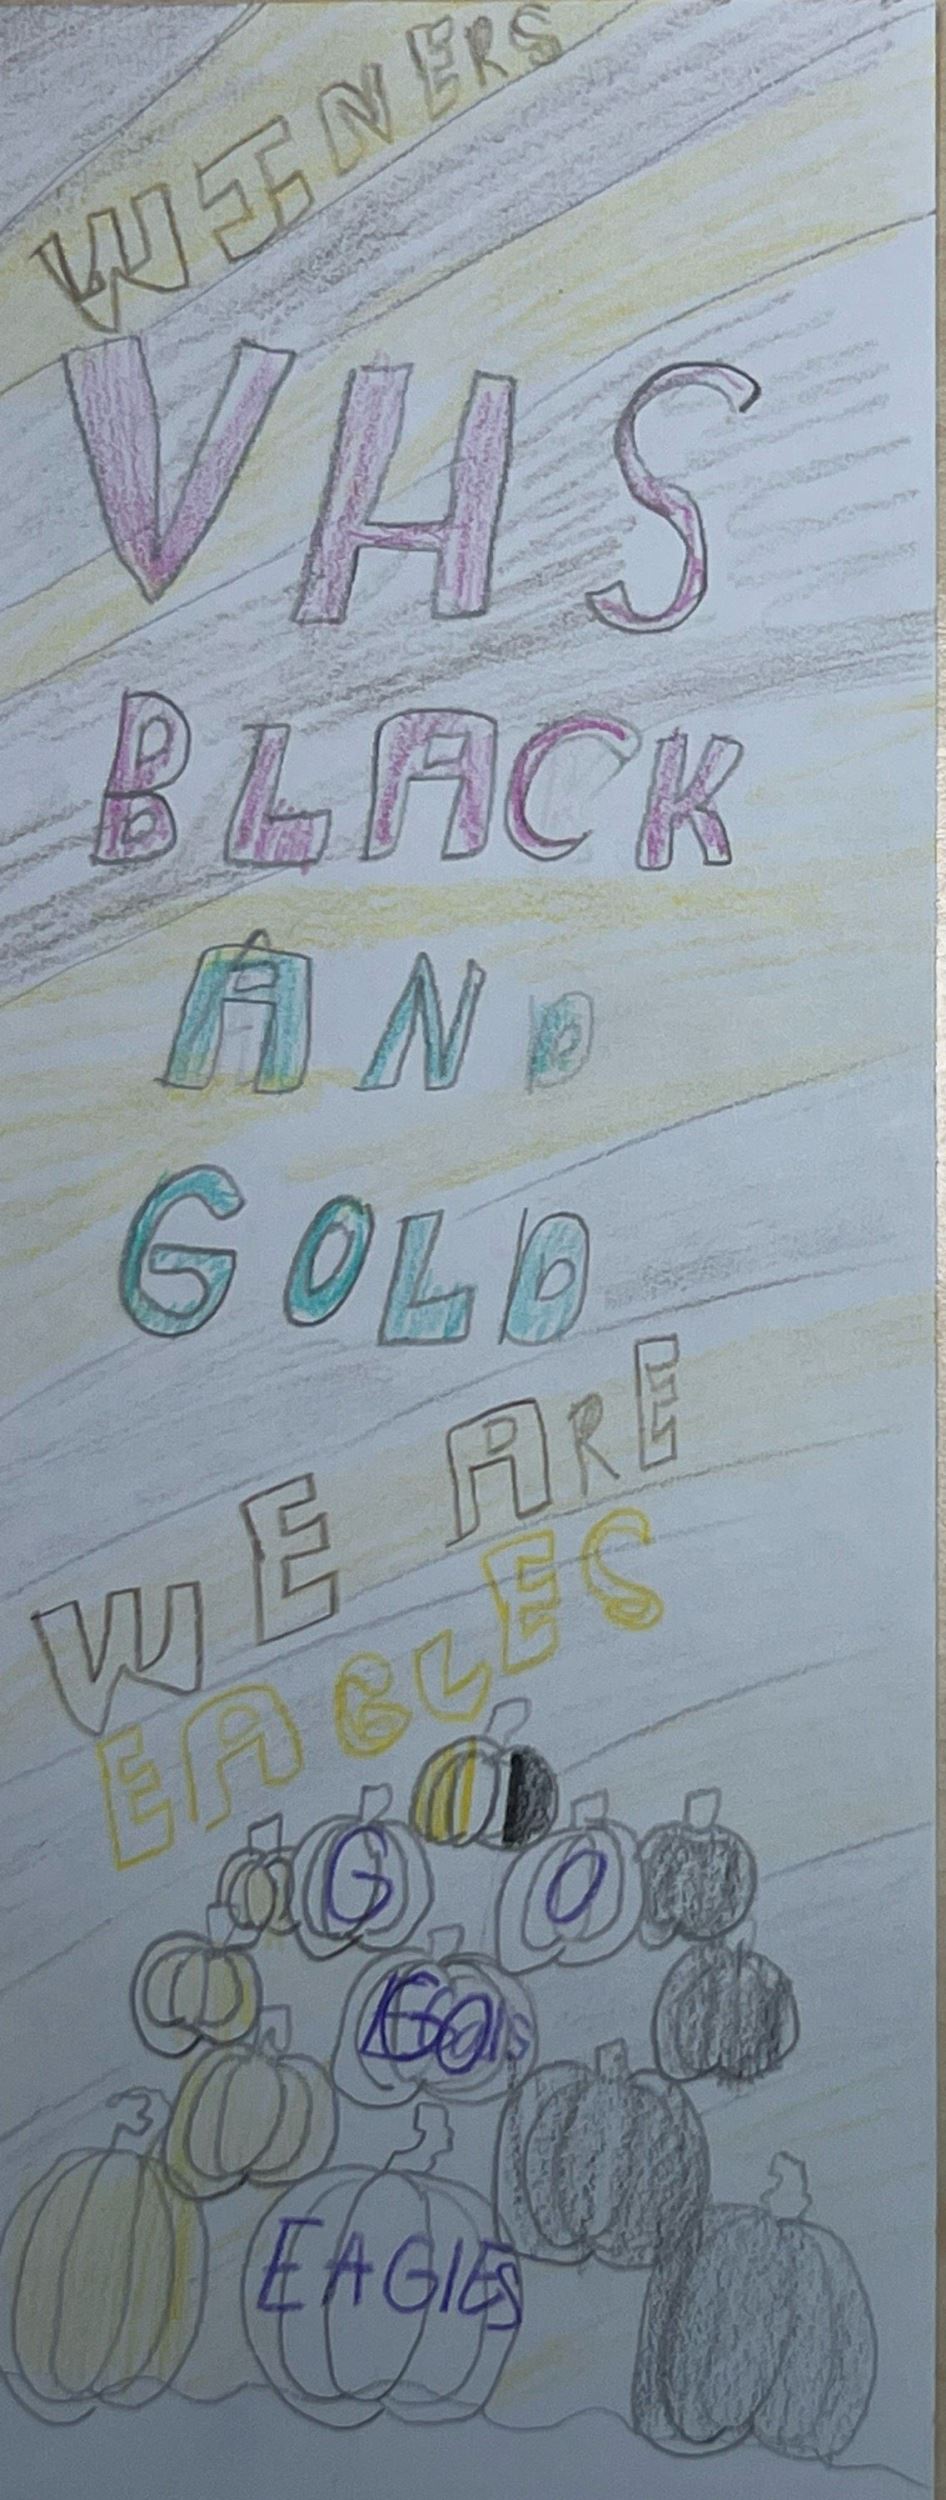 WINERS
VHS
BLACK
AND
GOLD
WE ARE
EAGLES
G O
EAGlES